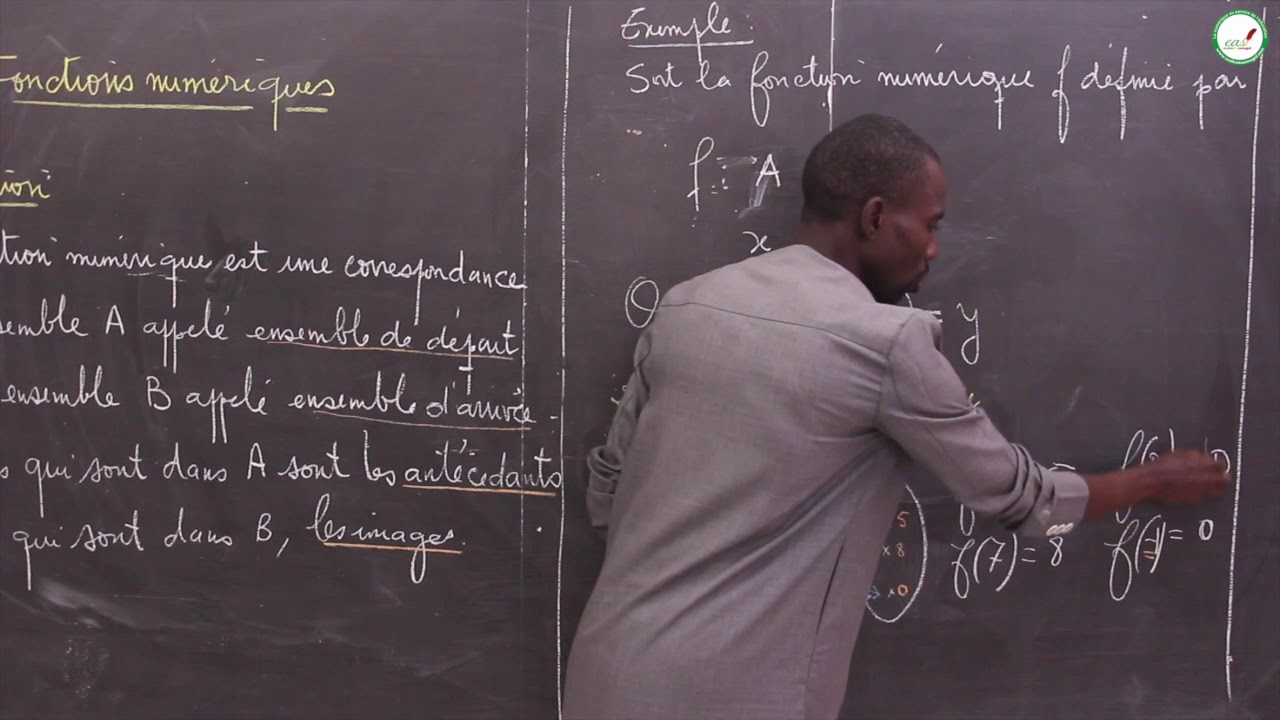 Fonctions numériques
tion numérique est une correspondance
semble A appelé ensemble de départ
ensemble B appelé ensemble d'arrivée
s qui sont dans A sont les antécédants
qui sont dans B, les images.
Exemple :
Soit la fonction numérique f définie par
f : A
x
y
5
x 8
x 0
f(7) = 8
f(-1) = 0
eas